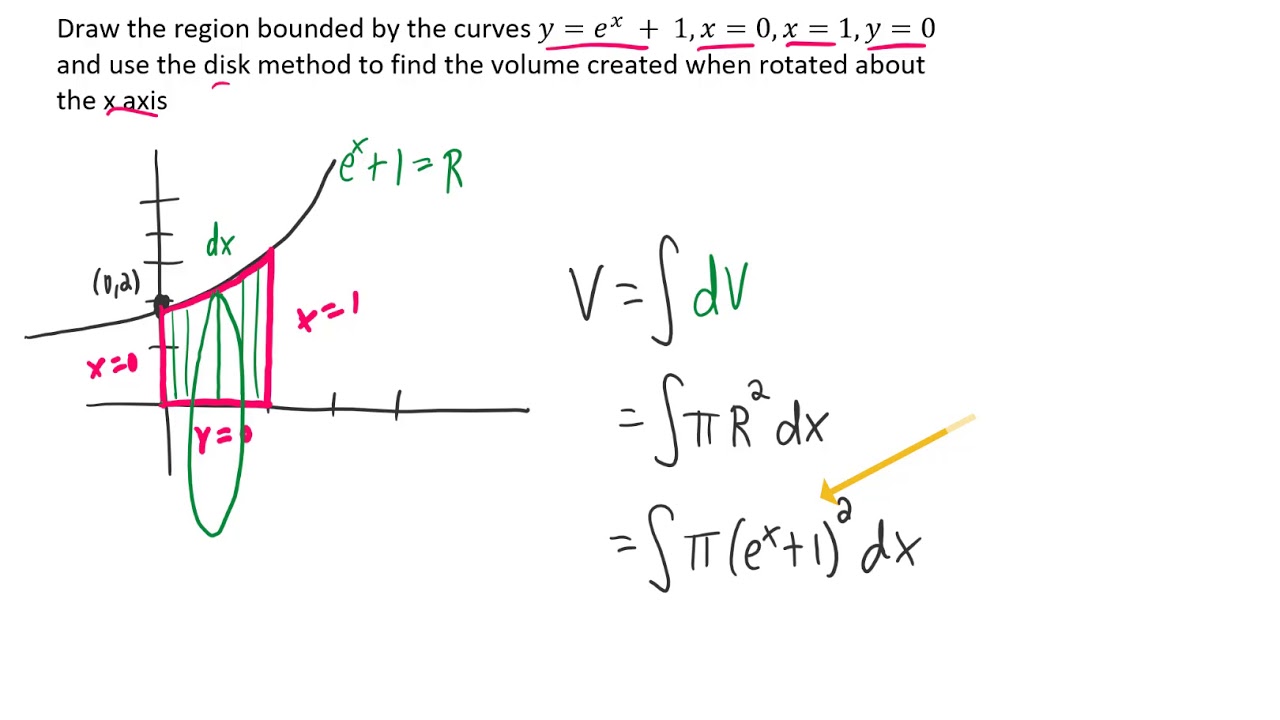 Draw the region bounded by the curves y = eˣ + 1, x = 0, x = 1, y = 0
and use the disk method to find the volume created when rotated about
the x axis
eˣ+1=R
dx
(0,2)
x=1
x=0
y=0
V=∫dV
=∫πR²dx
=∫π(eˣ+1)²dx